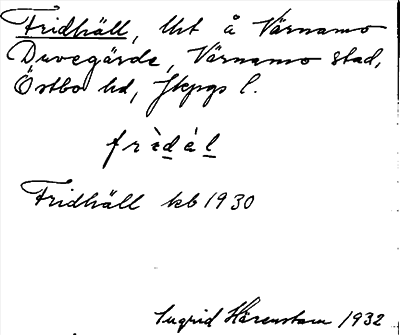 Fridhäll, lht å Värnamo
Duvegärde, Värnamo stad,
Östbo hd, Jkpgs l.
frìdǽl
Fridhäll kb 1930
Ingrid Härenstam 1932